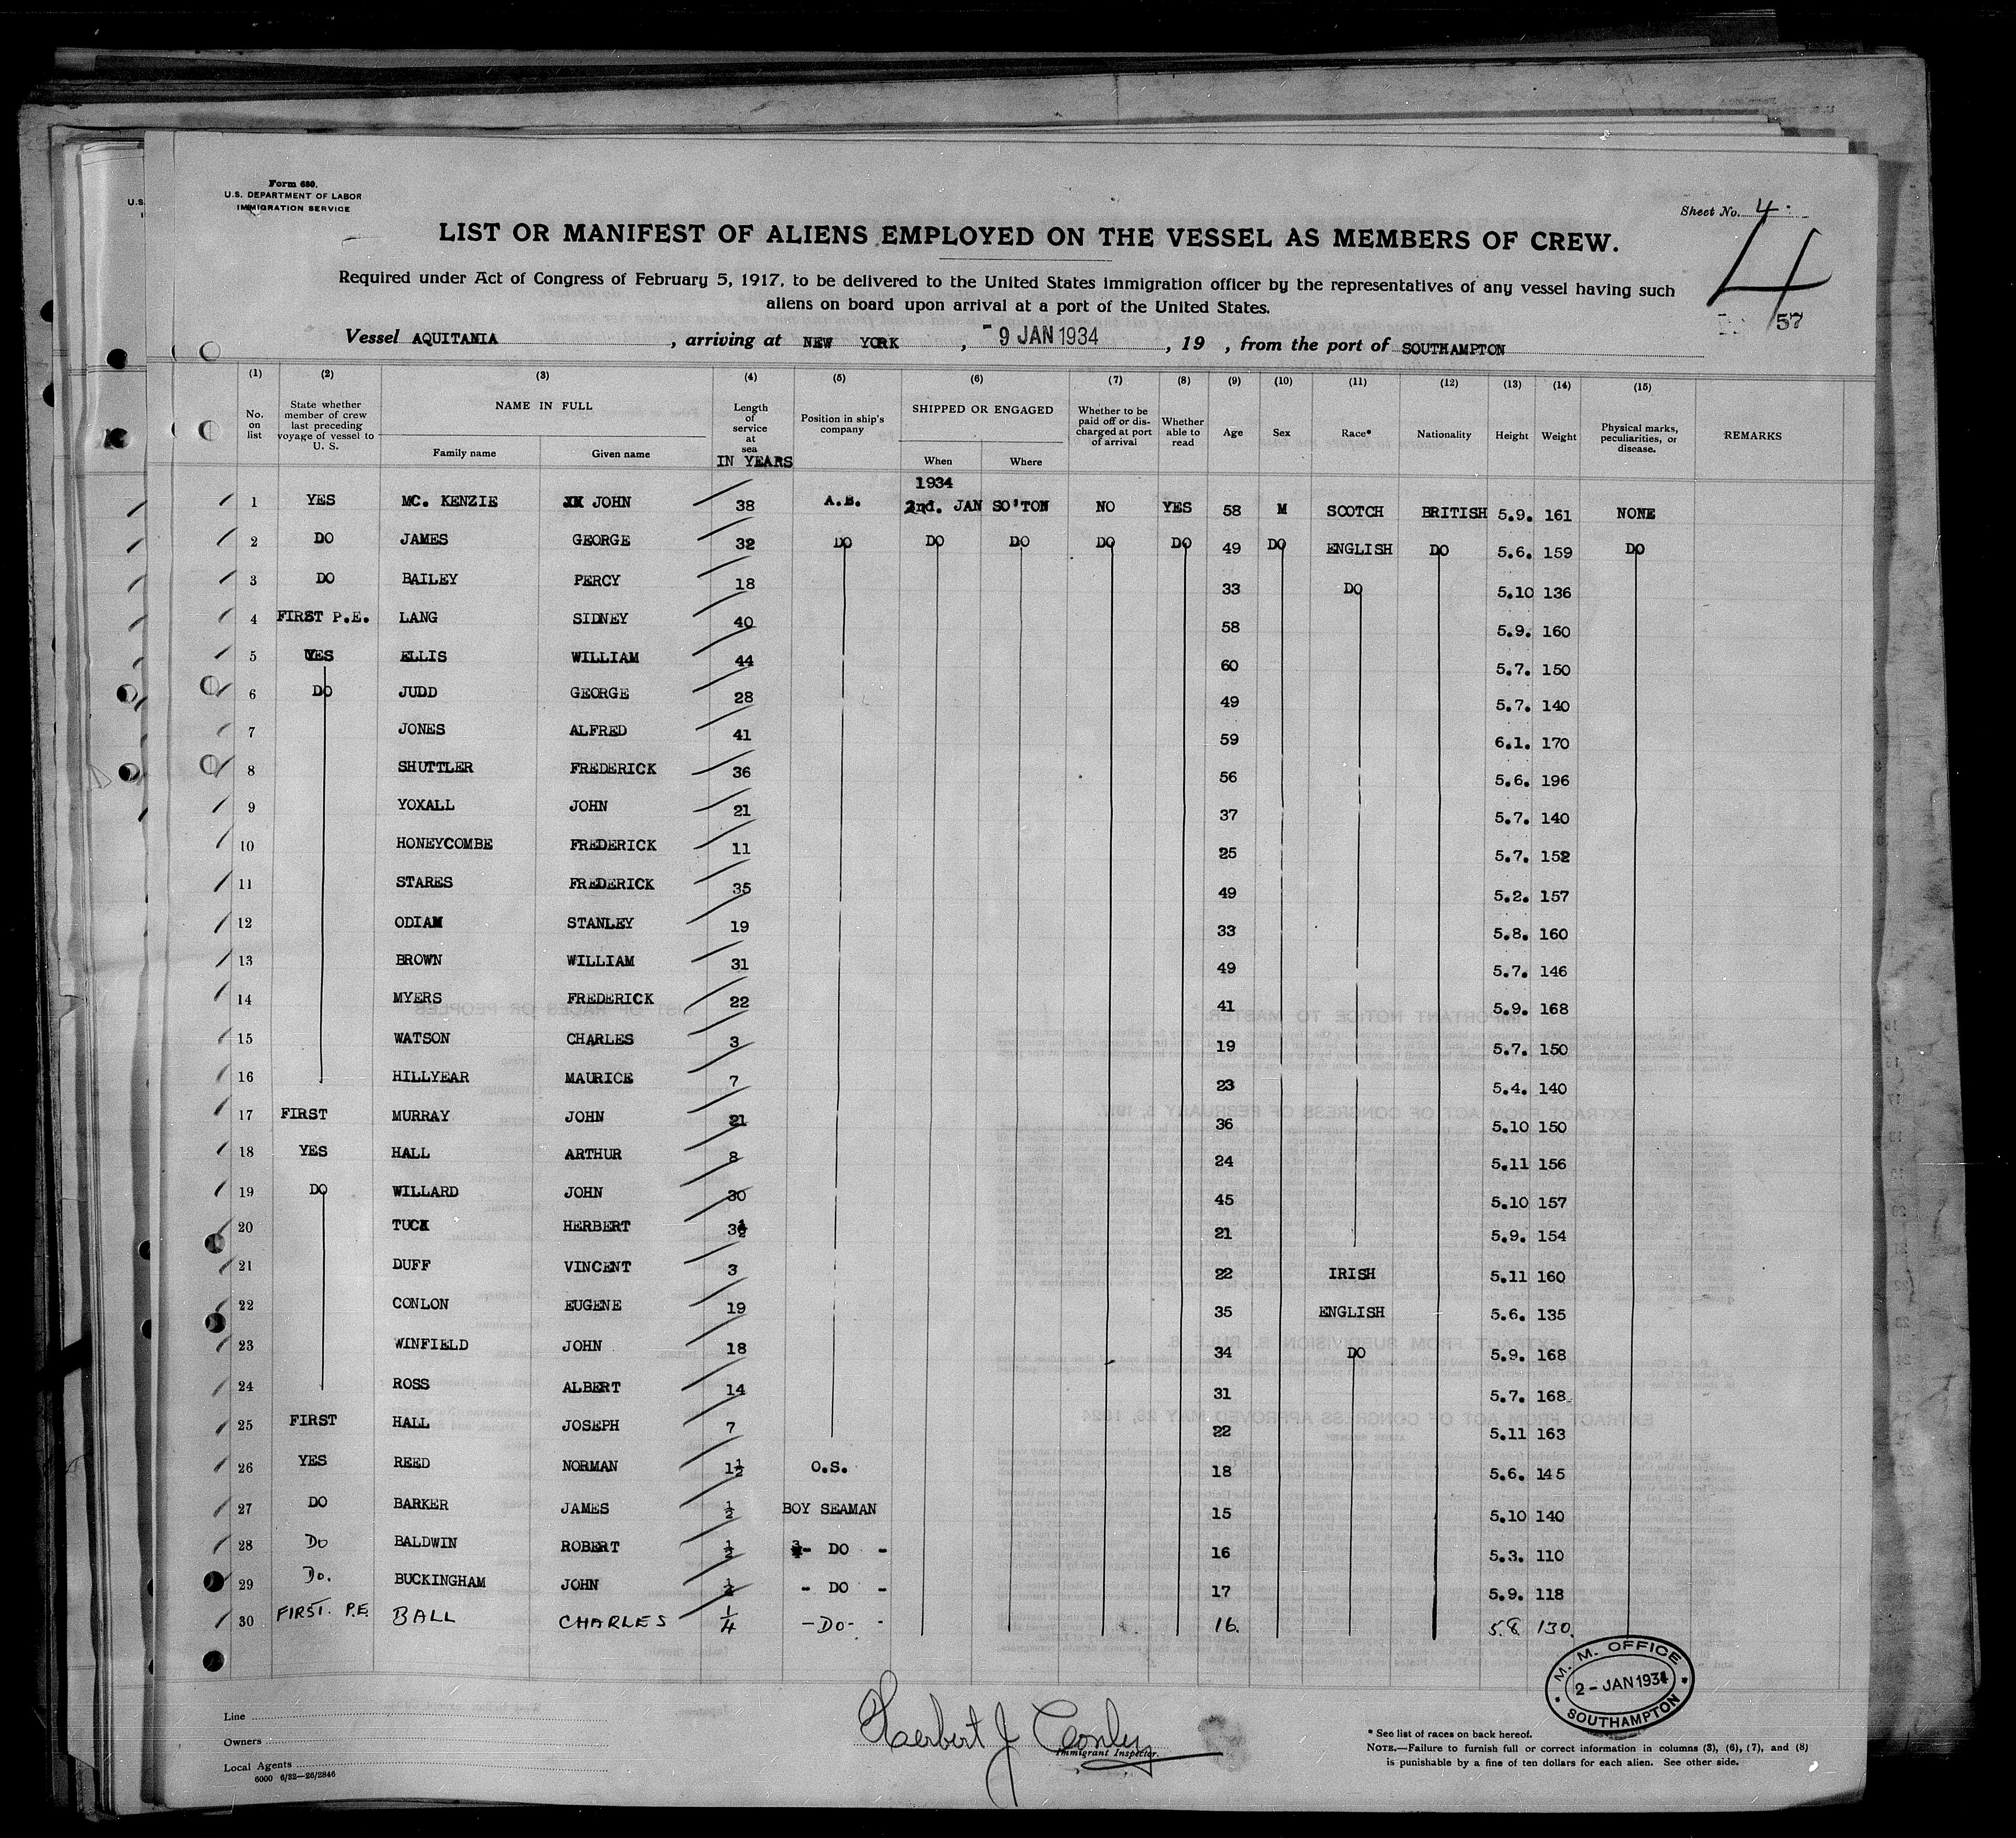 Form 680.
U.S. DEPARTMENT OF LABOR
IMMIGRATION SERVICE
Sheet No. 4.
4
LIST OR MANIFEST OF ALIENS EMPLOYED ON THE VESSEL AS MEMBERS OF CREW.
Required under Act of Congress of February 5, 1917, to be delivered to the United States immigration officer by the representatives of any vessel having such
aliens on board upon arrival at a port of the United States.
57
Vessel AQUITANIA, arriving at NEW YORK, - 9 JAN 1934, 19 , from the port of SOUTHAMPTON
(1) (2) (3) (4) (5) (6) (7) (8) (9) (10) (11) (12) (13) (14) (15)
No. on list State whether member of crew last preceding voyage of vessel to U. S. NAME IN FULL Family name Given name Length of service at sea IN YEARS Position in ship's company SHIPPED OR ENGAGED When Where Whether to be paid off or discharged at port of arrival Whether able to read Age Sex Race* Nationality Height Weight Physical marks, peculiarities, or disease. REMARKS
1934
1 YES MC. KENZIE JOHN 38 A.B. 2nd. JAN SO'TON NO YES 58 M SCOTCH BRITISH 5.9. 161 NONE
2 DO JAMES GEORGE 32 DO DO DO DO DO 49 DO ENGLISH DO 5.6. 159 DO
3 DO BAILEY PERCY 18 33 DO 5.10 136
4 FIRST P.E. LANG SIDNEY 40 58 5.9. 160
5 YES ELLIS WILLIAM 44 60 5.7. 150
6 DO JUDD GEORGE 28 49 5.7. 140
7 JONES ALFRED 41 59 6.1. 170
8 SHUTTLER FREDERICK 36 56 5.6. 196
9 YOXALL JOHN 21 37 5.7. 140
10 HONEYCOMBE FREDERICK 11 25 5.7. 152
11 STARES FREDERICK 35 49 5.2. 157
12 ODIAM STANLEY 19 33 5.8. 160
13 BROWN WILLIAM 31 49 5.7. 146
14 MYERS FREDERICK 22 41 5.9. 168
15 WATSON CHARLES 3 19 5.7. 150
16 HILLYEAR MAURICE 7 23 5.4. 140
17 FIRST MURRAY JOHN 21 36 5.10 150
18 YES HALL ARTHUR 8 24 5.11 156
19 DO WILLARD JOHN 30 45 5.10 157
20 TUCK HERBERT 3½ 21 5.9. 154
21 DUFF VINCENT 3 22 IRISH 5.11 160
22 CONLON EUGENE 19 35 ENGLISH 5.6. 135
23 WINFIELD JOHN 18 34 DO 5.9. 168
24 ROSS ALBERT 14 31 5.7. 168
25 FIRST HALL JOSEPH 7 22 5.11 163
26 YES REED NORMAN 1½ O.S. 18 5.6. 145
27 DO BARKER JAMES ½ BOY SEAMAN 15 5.10 140
28 DO BALDWIN ROBERT ½ - DO - 16 5.3. 110
29 DO. BUCKINGHAM JOHN ½ - DO - 17 5.9. 118
30 FIRST. P.E. BALL CHARLES ¼ - DO - 16. 5.8 130.
M. M. OFFICE
2 - JAN 1934
SOUTHAMPTON
Line
Owners
Local Agents
6000 6/32—26/2846
Herbert J Conly
Immigrant Inspector.
* See list of races on back hereof.
NOTE.—Failure to furnish full or correct information in columns (3), (6), (7), and (8)
is punishable by a fine of ten dollars for each alien. See other side.